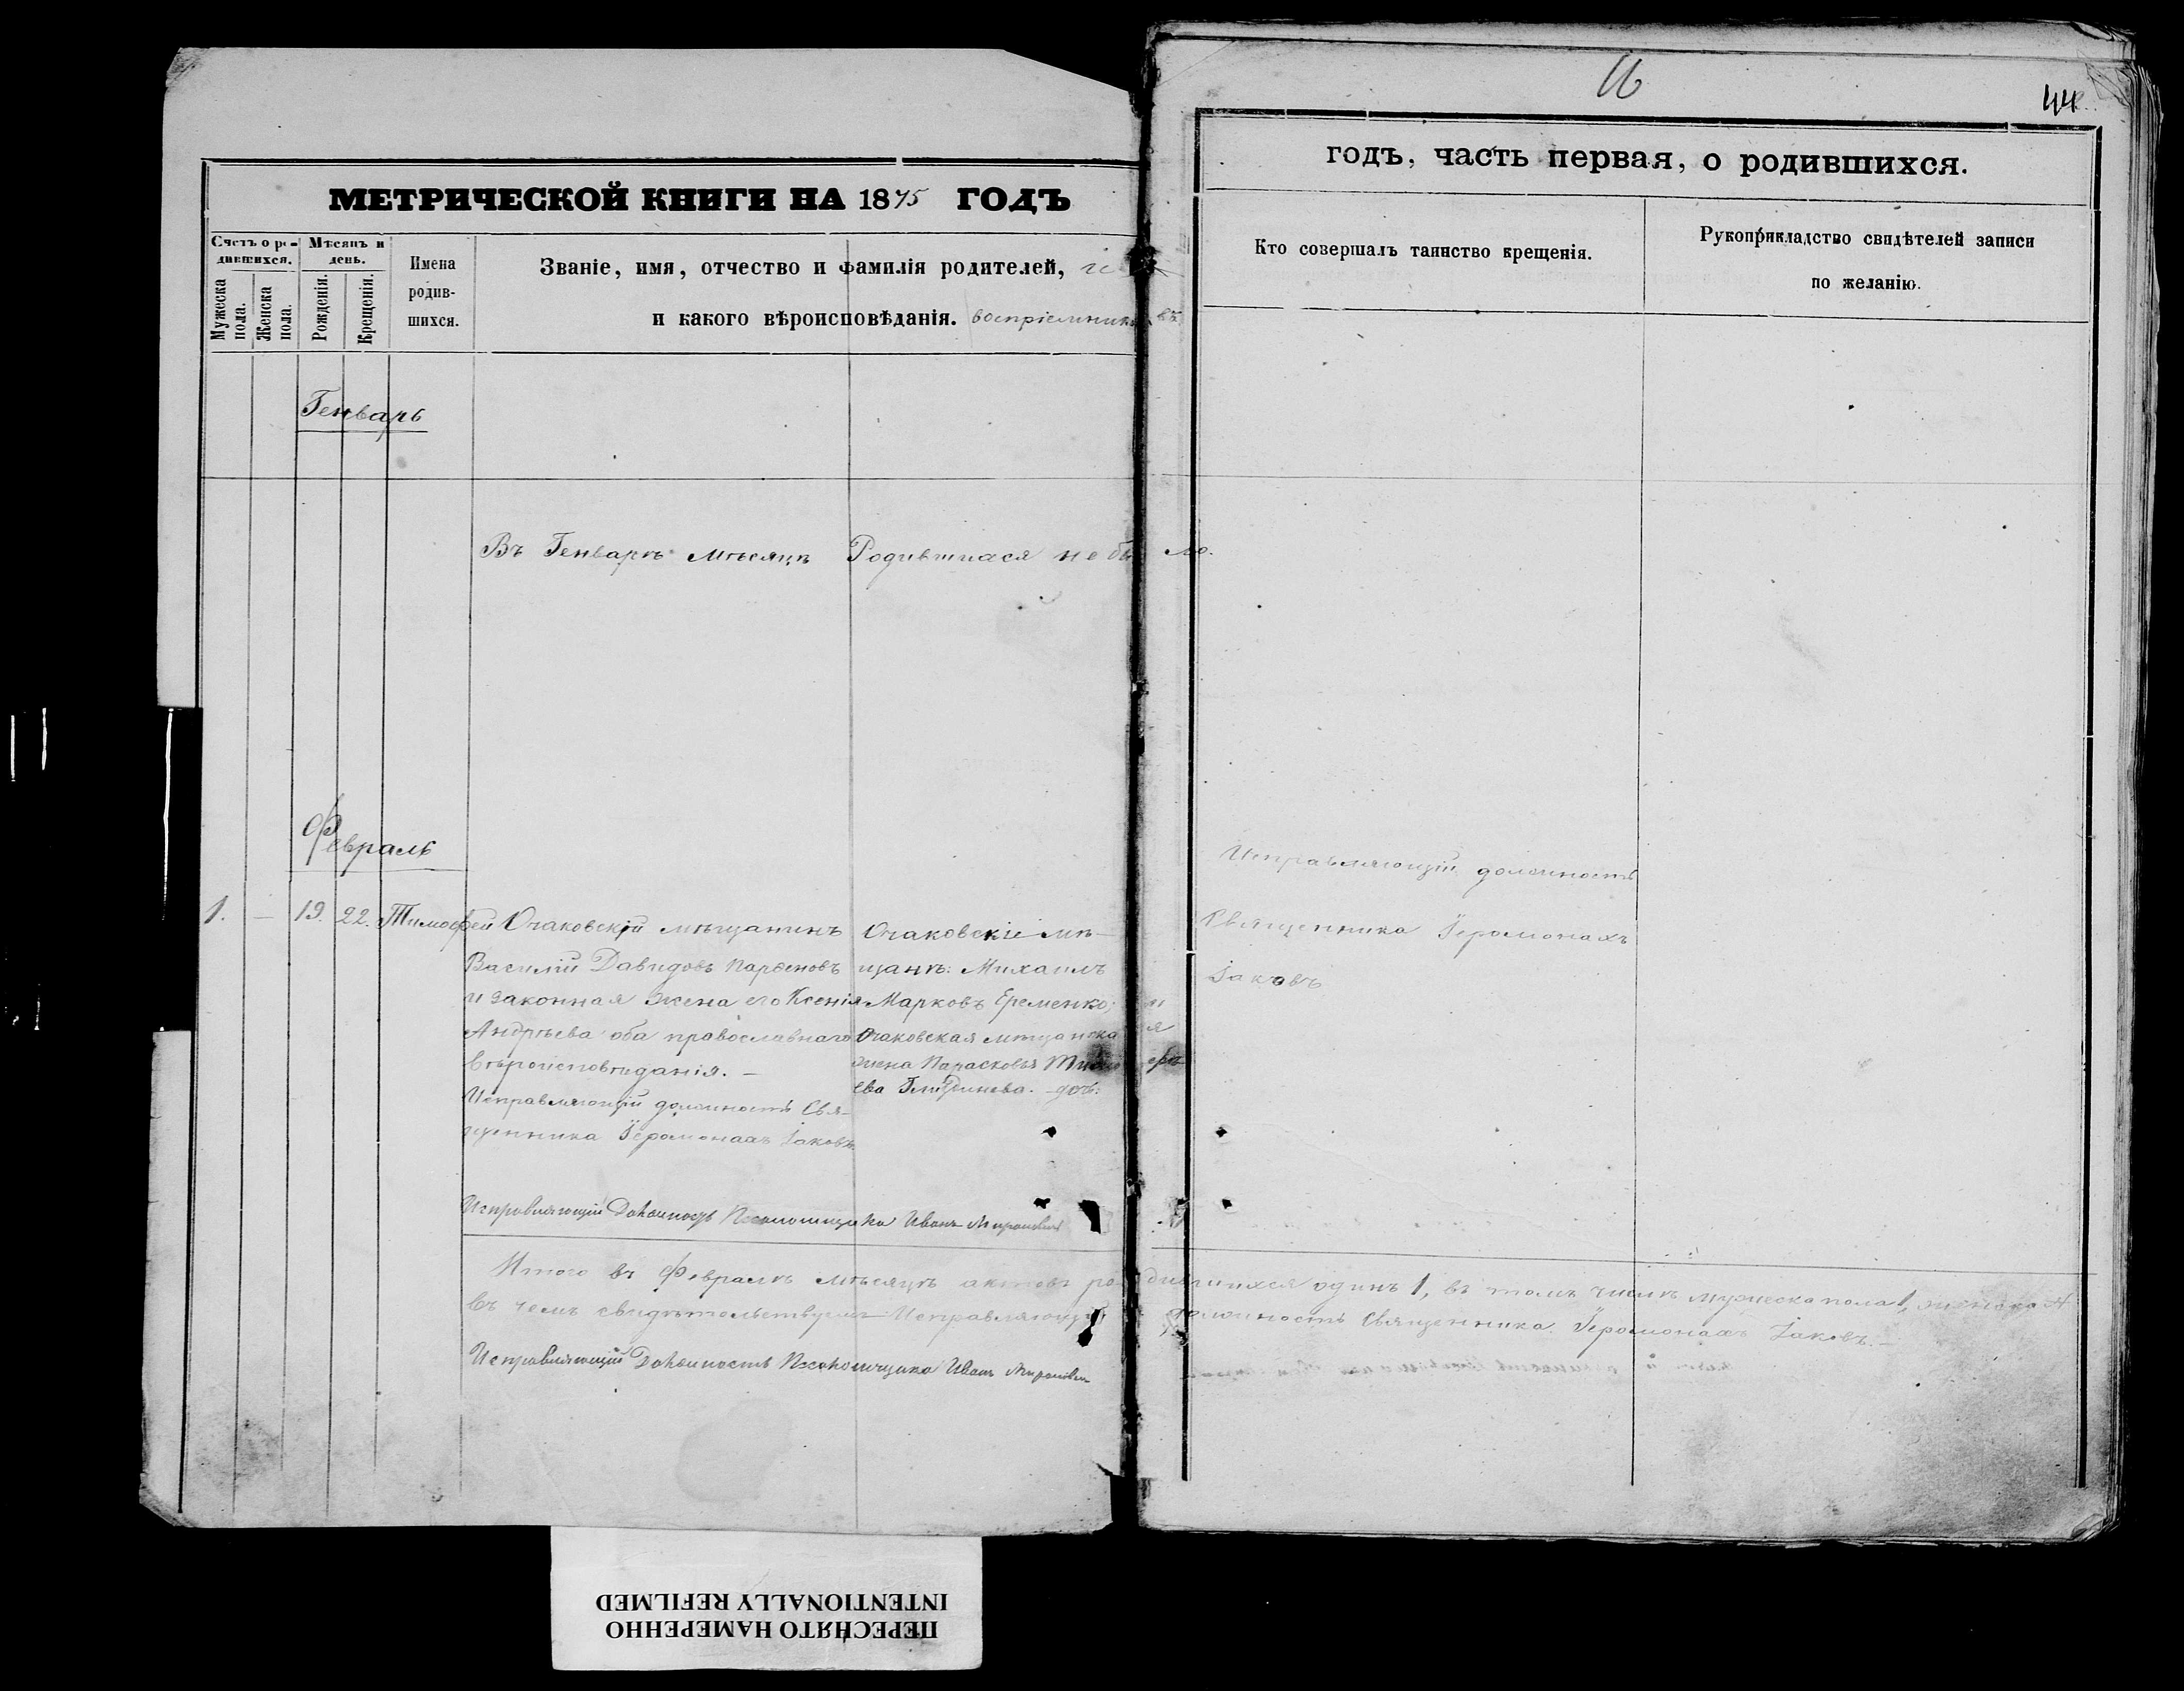 МЕТРИЧЕСКОЙ КНИГИ НА 1875 ГОДЪ
Счетъ о ро-
дившихся.
Мужеска
пола.
Женска
пола.
Мѣсяцъ и
день.
Рожденія.
Крещенія.
Имена
родив-
шихся.
Званіе, имя, отчество и фамилія родителей, и
и какого вѣроисповѣданія. воспріемниковъ
Генварь
Въ Генварѣ мѣсяцѣ Родившихся не было.
Февраль
1. — 19. 22. Тимофей
Очаковскій мѣщанинъ
Василій Давидовъ Парѳеновъ
и законная жена его Ксенія
Андрѣева оба православнаго
вѣроисповѣданія. —
Исправляющій должность Свя-
щенника Іеромонахъ Іаковъ
Очаковскіе мѣ-
щане: Михаилъ
Марковъ Еременко; и
Очаковская мѣщанская
жена Парасковья Тимофе-
ева
Исправляющій Должность Псаломщика Иванъ
Итого въ Февралѣ мѣсяцѣ актовъ родившихся одинъ 1, въ томъ числѣ мужеска пола 1, женска
въ чемъ свидѣтельствуемъ Исправляющій должность Священника Іеромонахъ Іаковъ. —
Исправляющій Должность Псаломщика Иванъ
44
годъ, часть первая, о родившихся.
Кто совершалъ таинство крещенія.
Рукоприкладство свидѣтелей записи
по желанію.
Исправляющій должность
Священника Іеромонахъ
Іаковъ
ПЕРЕСНЯТО НАМЕРЕННО
INTENTIONALLY REFILMED